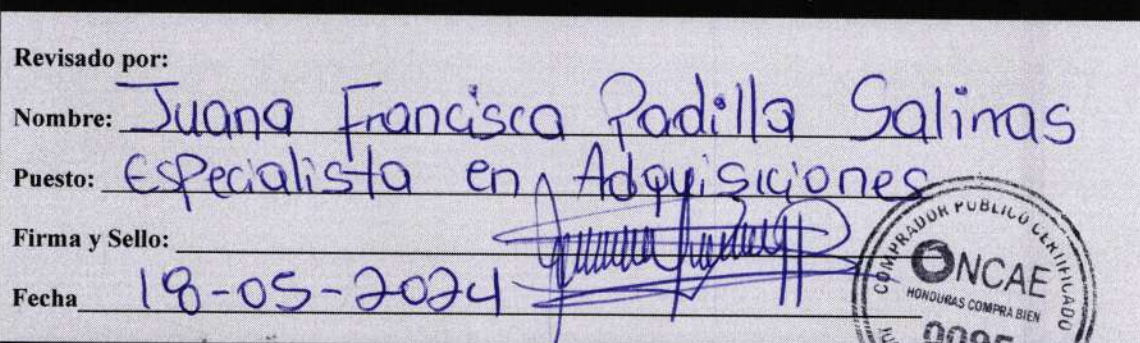 Revisado por:
Nombre: Juana Francisca Padilla Salinas
Puesto: Especialista en Adquisiciones
Firma y Sello:
Fecha 18-05-2024
COMPRADOR PUBLICO CERTIFICADO
ONCAE
HONDURAS COMPRA BIEN